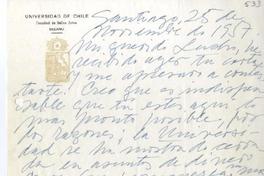 533
UNIVERSIDAD DE CHILE
Facultad de Bellas Artes
DECANO
Santiago, 25 de
Noviembre de 1957
Mi querido Lucho, re-
cibido ayer tu carta
y me apresuro a contes-
tarte. Creo que es indispen-
sable que tú estés aquí lo
más pronto posible, por
dos razones; la Universi-
dad se ha mostrado
en asuntos de dinero